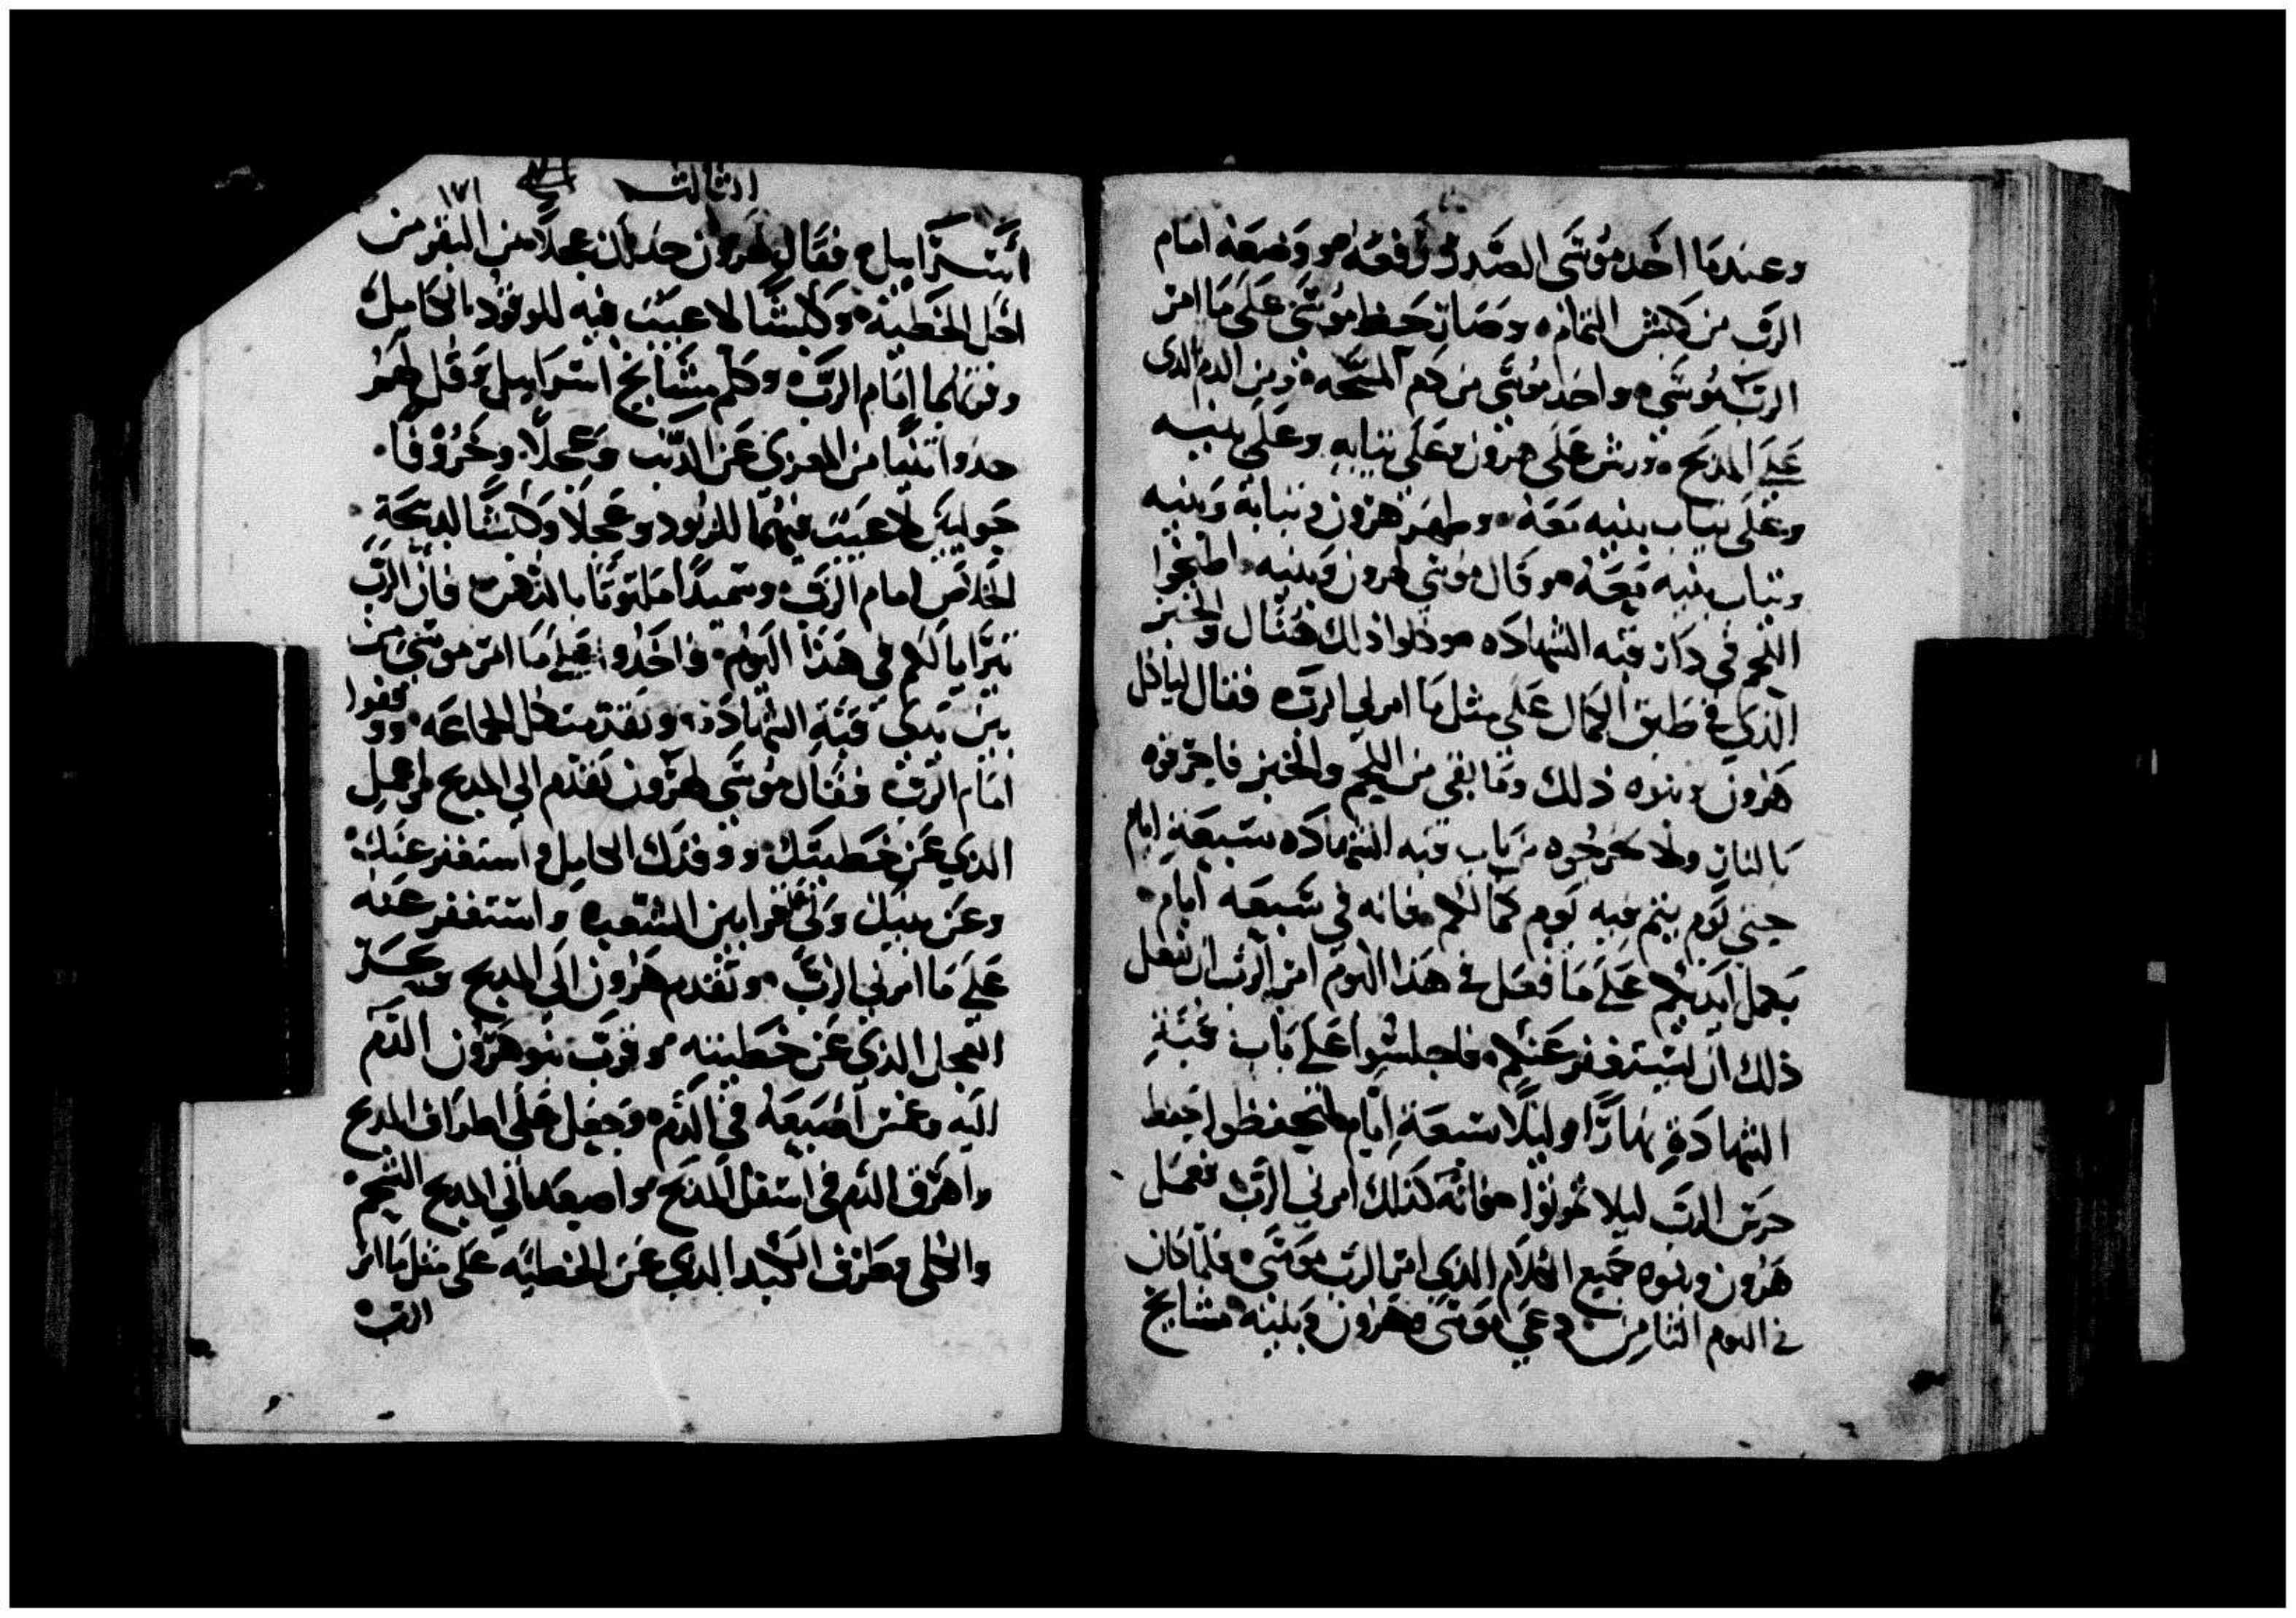 وعندما اخد موسى الصدر رفعه ووضعه امام
الرب من كبش التمام وصار حظ موسى على ما امر
الرب موسى واخد موسى من دم المسحه ومن الدم الدى
على المدبح ورش على هرون وعلى تيابه وعلى بنيه
وعلى تياب بنيه معه وطهر هرون وتيابه وبنيه
وتياب بنيه معه وقال موسى لهرون وبنيه اطبخوا
اللحم في دار قبه الشهاده وكلوا ذلك هنال والخبز
الذي في طبق الكمال على مثل ما امرني الرب فقال لياكل
هرون وبنوه ذلك وما بقي من اللحم والخبز فاحرقوه
بالنار ولا تخرجوه من باب قبه الشهاده سبعة ايام
حتي يوم يتم فيه يوم كمالكم فانه في سبعه ايام
يكمل ايديكم على ما فعل في هذا اليوم امر الرب ان نفعل
ذلك ان ليستغفر عنكم فاجلسوا على باب قبة
الشهادة نهارًا وليلًا سبعة ايام لتحفظوا حفظ
حرس الرب ليلا تموتوا فانه كذلك امرني الرب ففعل
هرون وبنوه جميع الكلام الذي امر الرب موسى فلما كان
في اليوم الثامن دعي موسى هرون وبنيه مشايخ
الثالث ١٧١
اسراييل فقال لهرون خذ لك عجلًا من البقر من
اجل الخطية وكبشًا لا عيب فيه للوقود الكامل
وقربهما امام الرب وكلم مشايخ اسراييل وقل لهم
خذوا تيسًا من المعزى عن الذنب وعجلًا وخروفًا
حوليين لا عيب فيهما للوقود وعجلًا وكبشًا لدبيحة
الخلاص امام الرب وسميدًا ملتوتًا بالدهن فان الرب
يترايا لكم في هذا اليوم فاخذوا جميع ما امر موسى من
بين يدى قبة الشهادة وتقدمت كل الجماعه ووقفوا
امام الرب فقال موسى لهرون تقدم الى المدبح واعمل
الذي عن خطيتك ووقدك الكامل واستغفر عنك
وعن بيتك وقرب قرابين الشعب واستغفر عنه
على ما امرني الرب وتقدم هرون الى المدبح ونحر
العجل الذي عن خطيته وقرب بنو هرون الدم
اليه وغمس اصبعه في الدم وجعل على اطراف المدبح
واهرق الدم في اسفل المدبح واصعد الى المدبح الشحم
والكلى وطرف الكبد الذي عن الخطيه على مثل ما امر
الرب